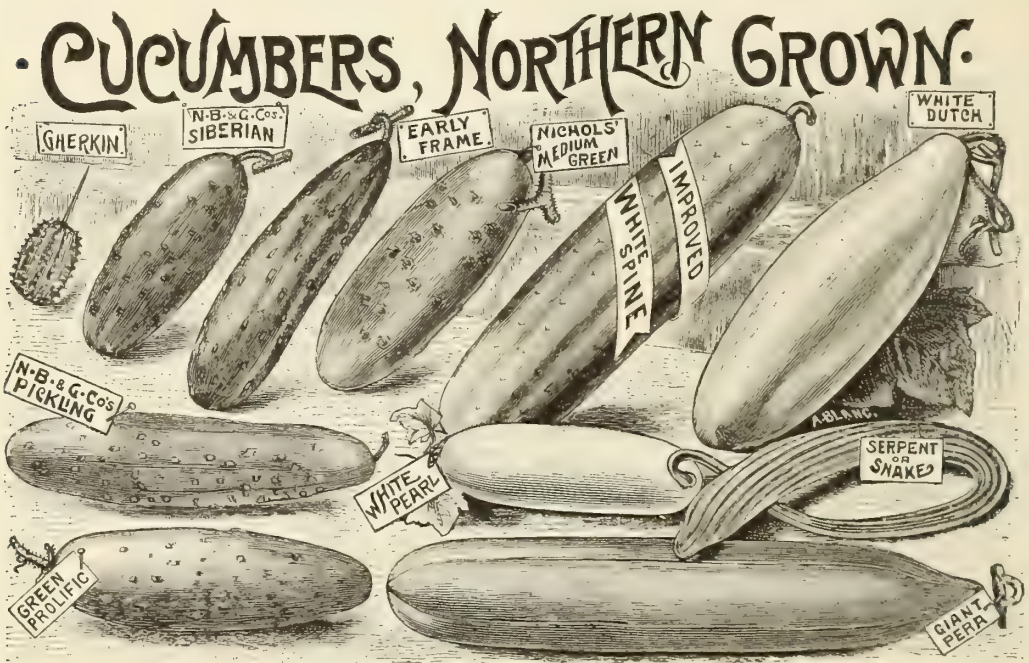 CUCUMBERS, NORTHERN GROWN.
GHERKIN.
N.B.&G.Cos.
SIBERIAN
EARLY
FRAME.
NICHOLS'
MEDIUM
GREEN
IMPROVED
WHITE SPINE
WHITE
DUTCH
N.B.&G.Co's
PICKLING
WHITE
PEARL
A.BLANC.
SERPENT
OR
SNAKE
GREEN
PROLIFIC
GIANT
PERA